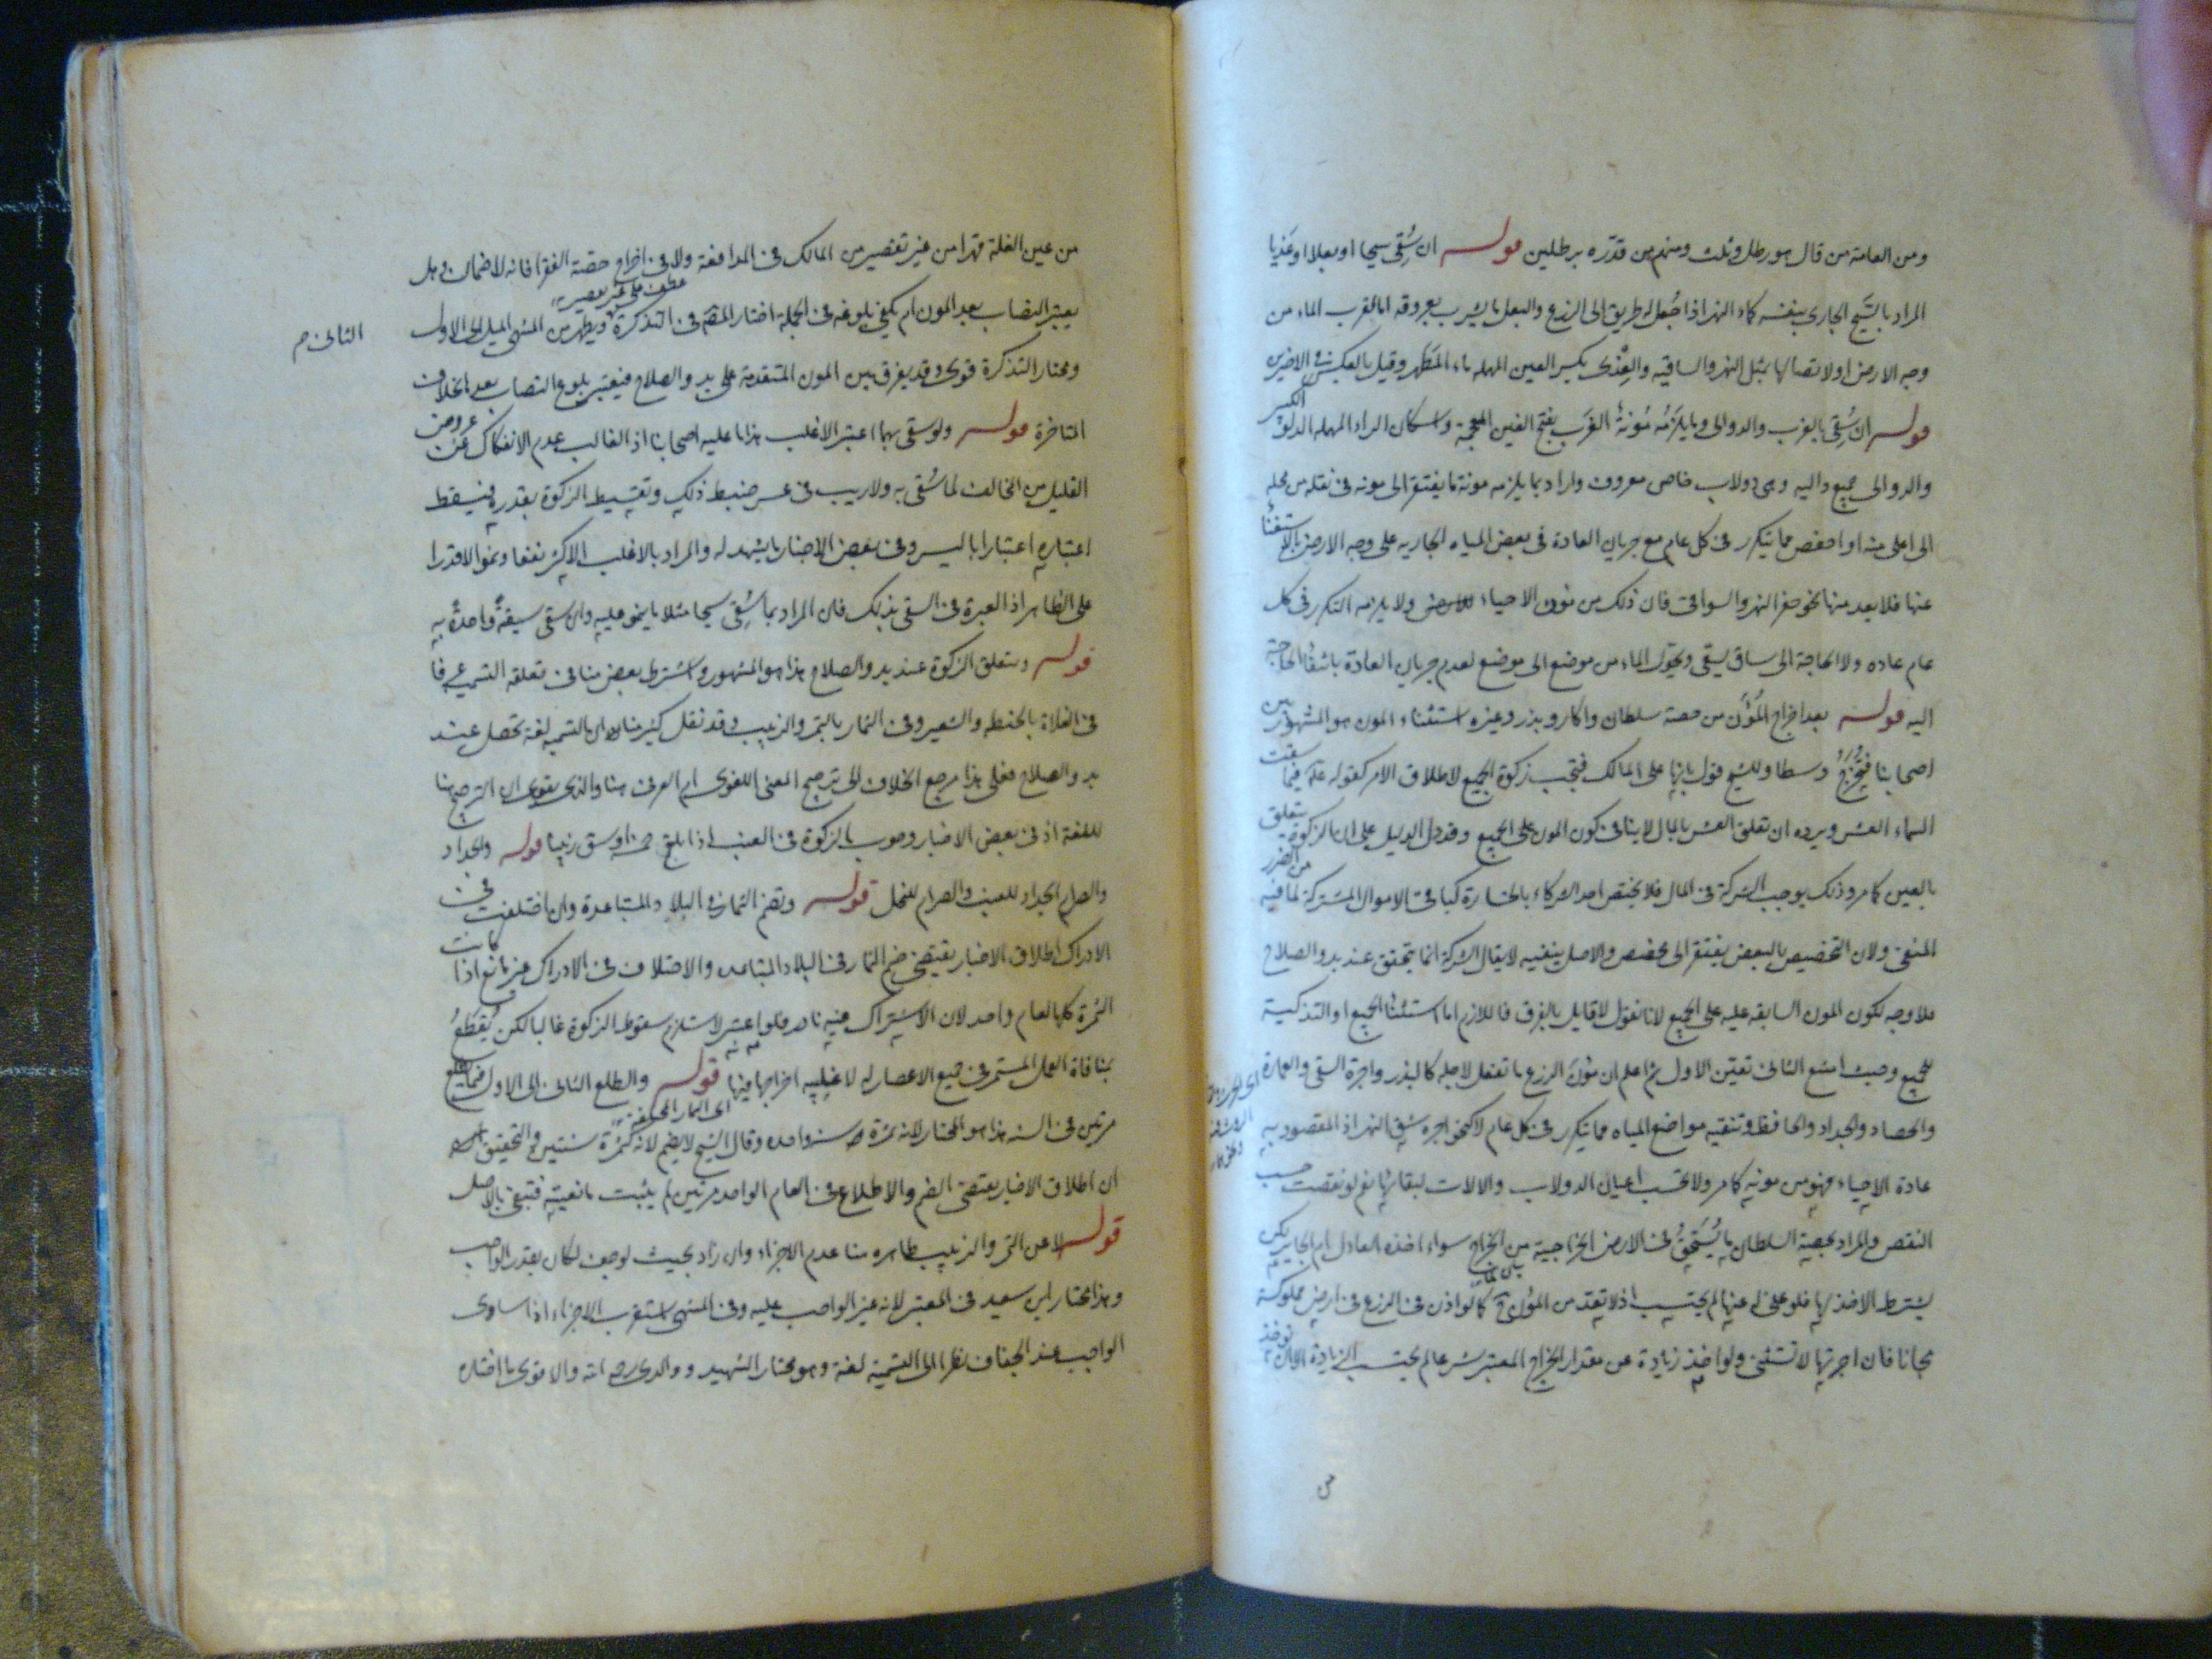 ومن العامة من قال هو رطل وثلث ومنهم من قدّره برطلين قوله ان سُقِى سيحا او بعلا او عَذيا
المراد بالسَّيح الجارى بنفسه كماء النهر اذا جُعل له طريق الى الزرع والبعل ما يشرب بعروقه اما لقرب الماء من
وجه الارض او لاتصالها بمثل النهر والساقيه والعِذى بكسر العين المهمله ماء المَطَهر وقيل بالعكس فى الاخيرين
قوله ان سُقِى بالغرب والدوالى وما يلزَمُه مُونة الغَرب بفتح الغين المعجمة واسكان الراء المهمله الدلو الكبير
والدوالى جميع داليه وهى دولاب خاص معروف واراد بما يلزمه مونة ما يفتقر الى مونه فى نقله من محله
الى اعلى منه او اخفض مما يتكرر فى كل عام مع جريان العادة فى بعض المياه الجاريه على وجه الارض بالاستغناء
عنها فلا يعد منها نحو حفر النهر والسواقى فان ذلك من مؤن الاحياء للارض ولا يلزمه التكرر فى كل
عام عاده ولا الحاجة الى ساق يسقى ويحوّل الماء من موضع الى موضع لعدم جريان العادة بانتفاء الحاجة
اليه قوله بعد اخراج المُؤَن من حصة سلطان واكار وبذر وغيره استثناء المون هو المشهور بين
اصحابنا فتُخرَجُ وسطا وللشيخ قول بانها على المالك فتجب زكوة الجميع لاطلاق الامر كقوله عليه فيما سقت
السماء العشر ويرده ان تعلق العشر بالمال لا ينافى كون المون على الجميع وقد دل الدليل على ان الزكوة تتعلق
بالعين كما مر وذلك يوجب الشركة فى المال فلا يختص احد الشركاء بالخسارة كباقى الاموال المشتركة لما فيه من الضرر
المنفى ولان التخصيص بالبعض يفتقر الى مخصص والاصل ينفيه لا يقال الشركة انما يتحقق عند بدو الصلاح
فلا وجه لكون المون السابقه عليه على الجميع لانا نقول لا قايل بالفرق فاللازم اما استثناء الجميع او التزكية
للجميع وحيث امتنع الثانى تعيّن الاول ثم اعلم ان مؤنَ الزرع ما تفعل لاجله كالبذر واجرة السقى والعمارة
والحصاد والجداد والحافظ وتنقيه مواضع المياه مما يتكرر فى كل عام لا كنحو اجره شق النهر اذ المقصود به
عادة الاحياء فهو من مونه كما مر ولا تحسب اعيان الدولاب والالات لبقائها نعم لو نقصت حسب
النقص والمراد بحصة السلطان ما يُستَحقُّ فى الارض الخراجية من الخراج سواء اخذه العادل ام الجاير لكن
يشترط الاخذ لها فلو عفى له عنها لم يحتسب اذ لا تعد من المؤن ح كما لو اذن فى الزرع فى ارض مملوكة
مجانا فان اجرتها لا تستثنى ولو اخذ زيادة عن مقدار الخراج المعتبر شرعا لم يحتسب الزيادة الا ان توخذ
من عين الغلة قهرا من غير تقصير من المالك فى المدافعة ولا فى اخراج حصّة الفقرا فانه لا ضمان وهل
عطف على غير تقصير
يعتبر النصاب بعد المون ام يكفى بلوغه فى الجملة اختار المصنف فى التذكرة ويظهر من المنتهى الميل الى الاول
الثانى م
ومختار التذكرة قوى وقد يفرق بين المون المتقدمة على بدو الصلاح فيعتبر بلوغ النصاب بعد بخلاف
المتاخرة قوله ولو سقى بهما اعتبر الاغلب هذا ما عليه اصحابنا اذ الغالب عدم الانفكاك عن عروض
القليل من المخالف لما سُقى به ولا ريب فى عسر ضبط ذلك وتقسيط الزكوة بقدره فيسقط
اعتباره اعتبارا باليسر وفى بعض الاخبار ما يشهد له والمراد بالاغلب الاكثر نفعا ونموا لا قدرا
على الظاهر اذ العبرة فى السقى بذلك فان المراد بما سُقِى سيحا مثلا ما ينمو عليه وان سقى سيقةً واحدةً به
قوله وتتعلق الزكوة عند بدو الصلاح هذا هو المشهور واشترط بعض منا فى تعلقه التسميه عرفا
فى الغلاة بالحنطه والشعير وفى الثمار بالتمر والزبيب وقد نقل كثير منا ان التسميه لغة تحصل عند
بدو الصلاح فعلى هذا مرجع الخلاف الى ترجيح المعنى اللغوى ام العرفى هنا والذى يقوى ان الترجيح هنا
للغة اذ فى بعض الاخبار وجوب الزكوة فى العنب اذا بلغ خمسة اوسق زبيبا قوله والجداد
والصرام الجداد للعنب والصرام للنخل قوله وتضم الثمار فى البلاد المتباعدة وان اختلفت فى
الادراك اطلاق الاخبار يقتضى ضم الثمار فى البلاد المتباعده والاختلاف فى الادراك غير مانع اذا كانت
الثمرة كلها لعام واحد لان الاشتراك فيه نادر فلو اعتبر لاستلزم سقوط الزكوة غالبا لكن يُقطَعُ
بمنافاة العمل المستمر فى جميع الاعصار له لاغلبيه اخراجها فيها قوله والطلع الثانى الى الاول فيما يطلع
مرتين فى السنه هذا هو المختار لانه ثمرة سنة واحده وقال الشيخ لا يضم لانه كثمرة سنتين والتحقيق
ان اطلاق الاخبار يقتضى الضم والاطلاع فى العام الواحد مرتين لم يثبت مانعيته فتبقى بالاصل
قوله لا عن التمر والزبيب ظاهره هنا عدم الاجزاء وان زاد بحيث لو جف لكان بقدر الواجب
وهذا مختار ابن سعيد فى المعتبر لانه غير الواجب عليه وفى المنتهى استقرب الاجزاء اذا ساوى
الواجب عند الجفاف نظرا الى التسمية لغة وهو مختار الشهيد ووالدى رحمه الله والاقوى ما اختاره